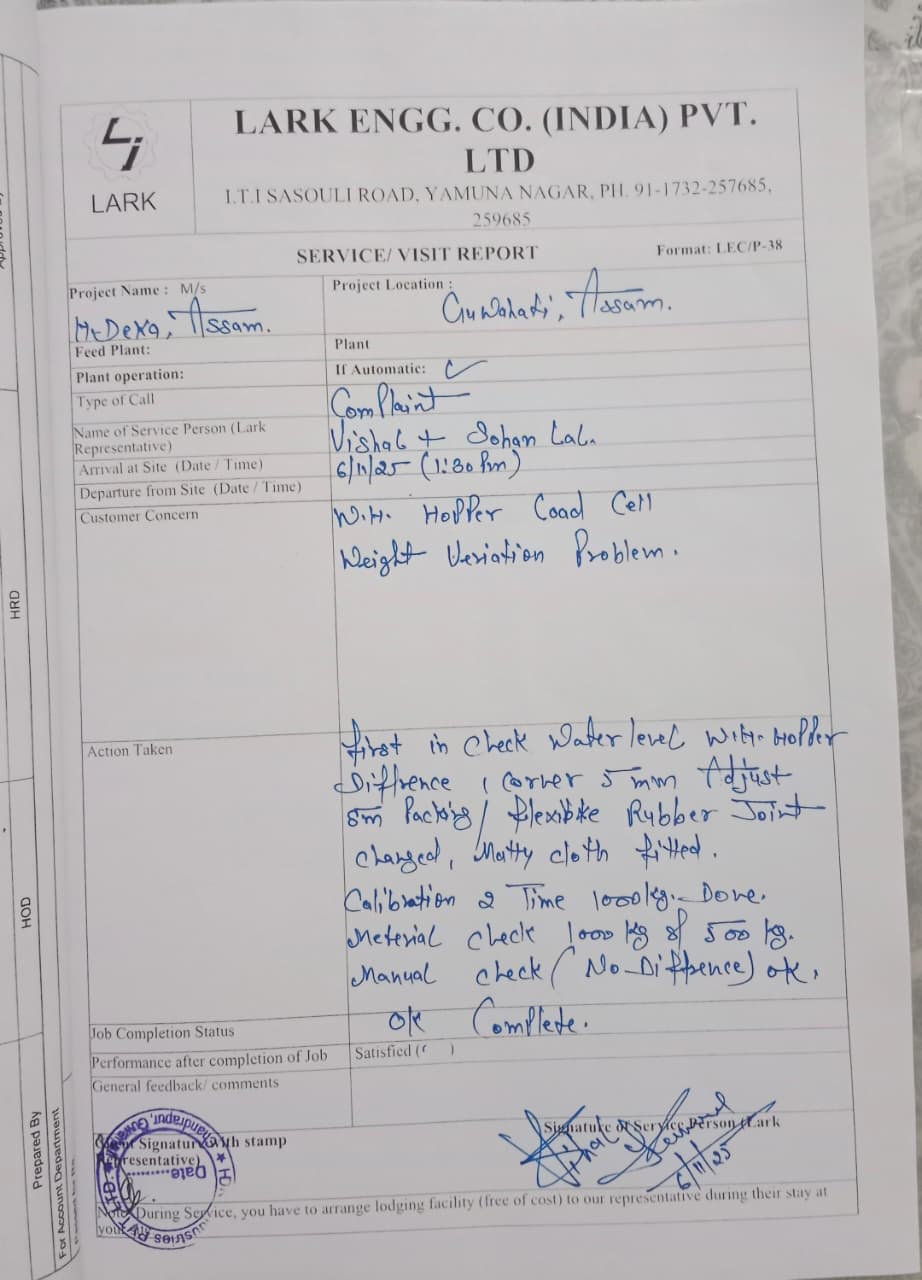 Lj
LARK
LARK ENGG. CO. (INDIA) PVT.
LTD
I.T.I SASOULI ROAD, YAMUNA NAGAR, PH. 91-1732-257685,
259685
SERVICE/ VISIT REPORT
Format: LEC/P-38
Project Name : M/s
Project Location :
Assam.
Guwahati, Assam.
Feed Plant:
Plant
Plant operation:
If Automatic:
Type of Call
Complaint
Name of Service Person (Lark
Representative)
Vishal + Sohan Lal.
Arrival at Site (Date / Time)
6/11/25 (1:30 Pm)
Departure from Site (Date / Time)
Customer Concern
W.H. Hopper Load Cell
Weight Veriation Problem.
Action Taken
first in Check Water level W.H. Hopper
Diffrence 1 Corner 5 mm Adjust
5m Packing / flexibke Rubber Joint
Changed, Matty cloth fitted.
Calibration 2 Time 1000 kg. Done.
Meterial check 1000 kg & 500 kg.
Manual check (No Diffrence) ok.
Job Completion Status
OK Complete.
Performance after completion of Job
Satisfied ( )
General feedback/ comments
Signature with stamp
Representative)
Signature of Service Person (Lark
Vishal
6/11/25
Date
Note: During Service, you have to arrange lodging facility (free of cost) to our representative during their stay at
HRD
HOD
Prepared By
For Account Department